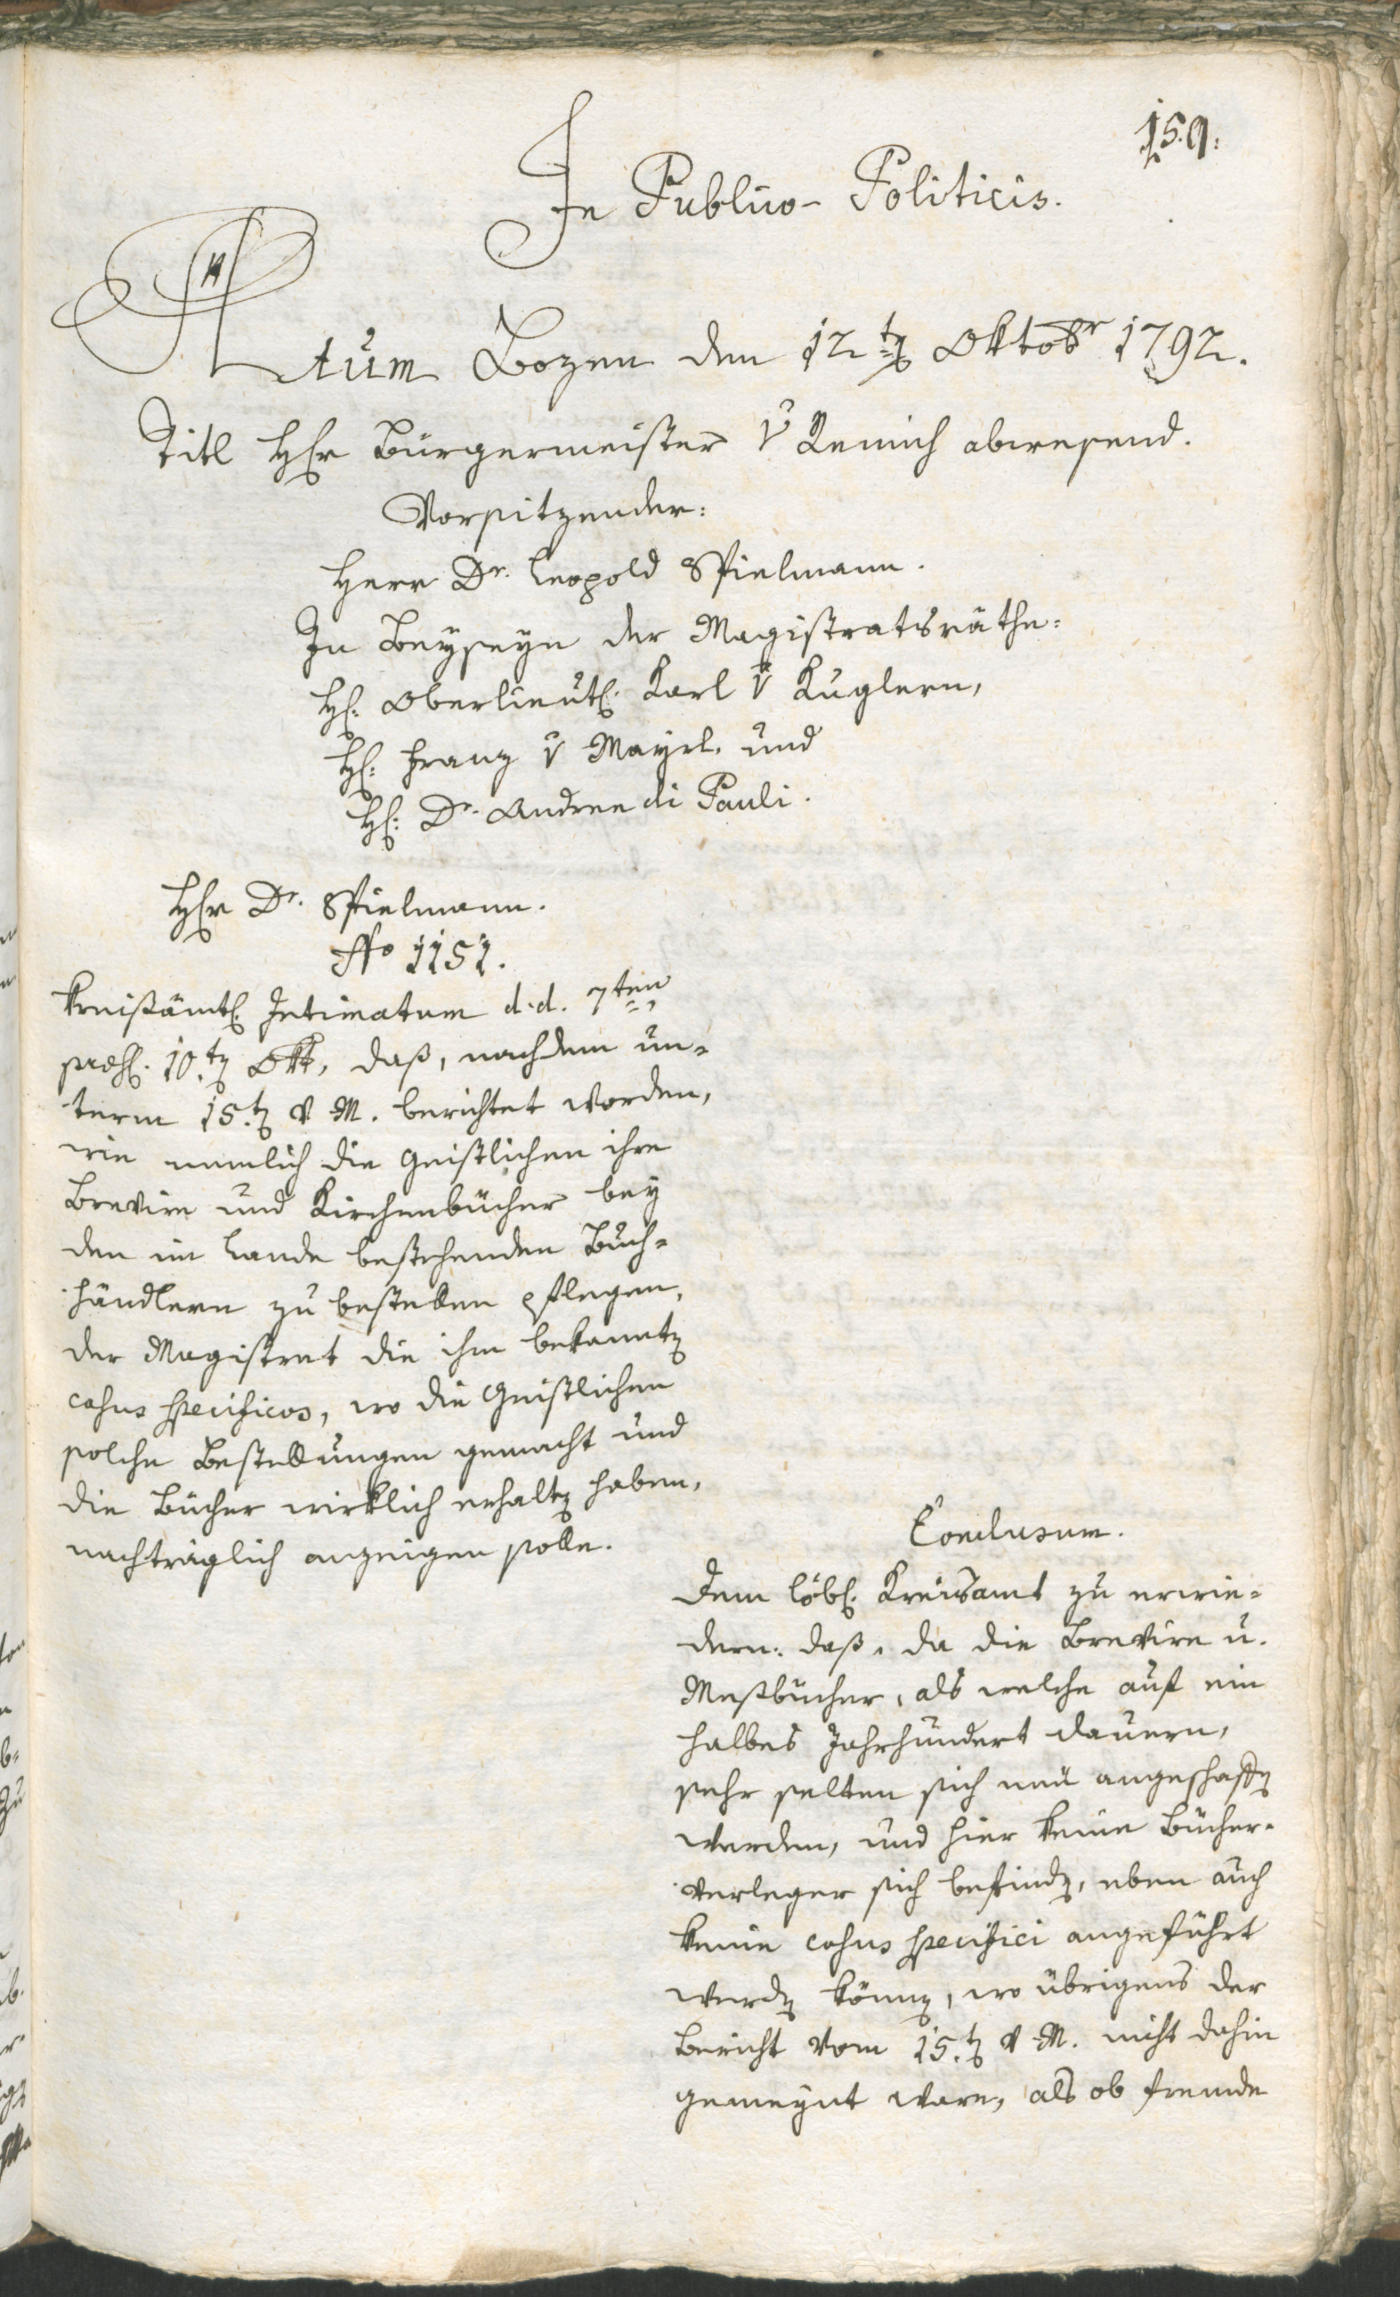 159.
In Publico-Politicis.
Actum Bozen den 12ten Oktobr 1792.
Titl Hr Bürgermeister v Remich abwesend.
Vorsitzender:
Herr Dr. Leopold Spielmann.
In Beyseyn der Magistratsräthe:
H: Oberlieutl. Karl v Kuglern,
H: Franz v Mayrl. und
H: Dr. Andree di Pauli.
Hr Dr. Spielmann.
No 1151.
Kreisämtl. Intimatum d. d. 7ten
praes. 10ten Okt, daß, nachdem un-
term 15ten v M. berichtet worden,
wie nemlich die Geistlichen ihre
Brevire und Kirchenbücher bey
den im Lande bestehenden Buch-
händlern zu bestellen pflegen,
der Magistrat die ihm bekannten
casus specificos, wo die Geistlichen
solche Bestellungen gemacht und
die Bücher wirklich erhalten haben,
nachträglich anzeigen solle.
Conclusum.
Dem löbl. Kreisamt zu erwie-
dern: daß, da die Brevire u.
Meßbücher, als welche auf ein
halbes Jahrhundert dauern,
sehr selten sich neu angeschafft
werden, und hier keine Bücher-
verleger sich befinden, eben auch
keine casus specifici angeführt
werden können, wo übrigens der
Bericht vom 15ten v M. nicht dahin
gemeynt ware, als ob fremde